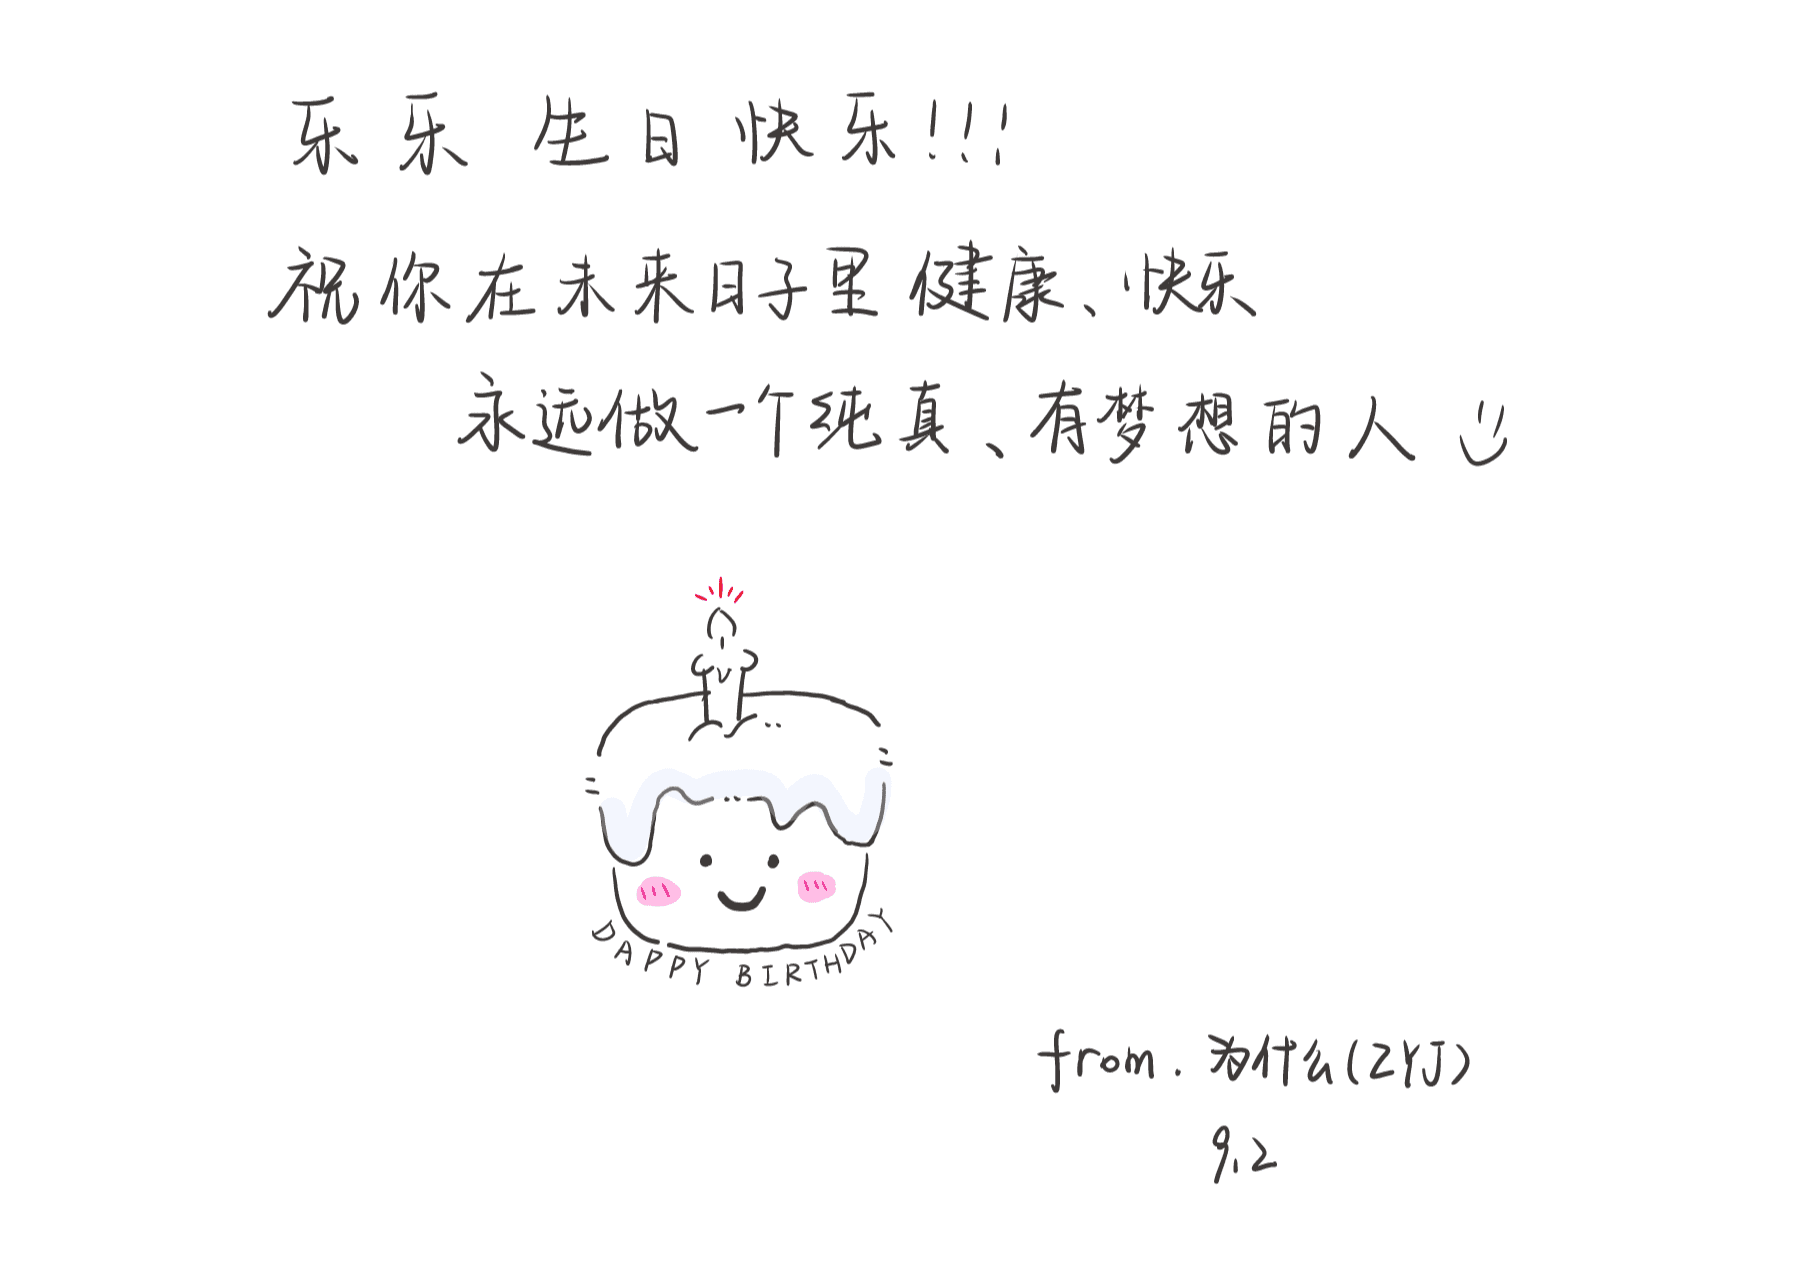 乐乐 生日快乐!!!
祝你在未来日子里健康、快乐
永远做一个纯真、有梦想的人
DAPPY BIRTHDAY
from. 为什么(ZYJ)
9.2